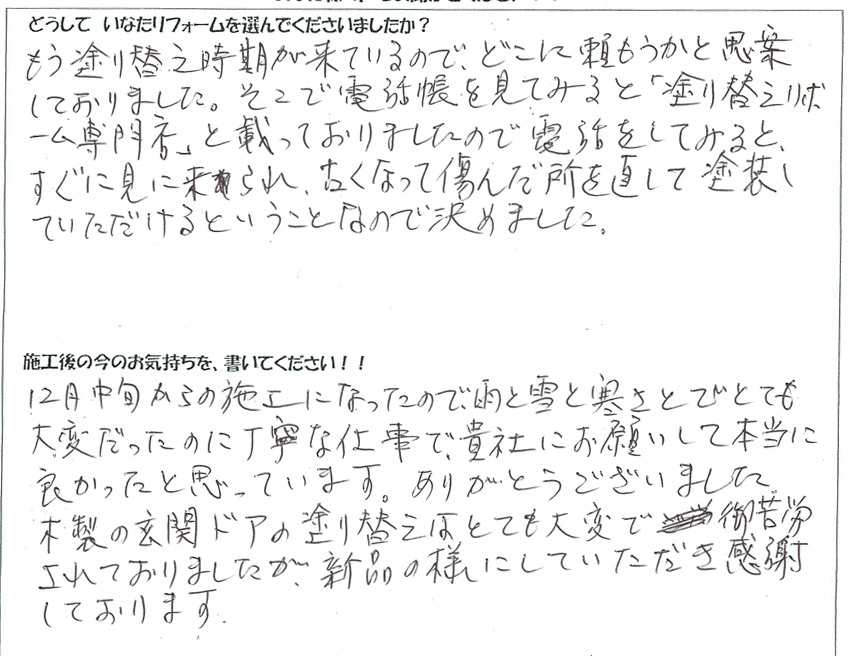 どうして いなたリフォームを選んでくださいましたか？
もう塗り替え時期が来ているので、どこに頼もうかと思案
しておりました。そこで電話帳を見てみると「塗り替えリホ
ーム専門店」と載っておりましたので電話をしてみると、
すぐに見に来られ、古くなって傷んだ所を直して塗装し
ていただけるということなので決めました。
施工後の今のお気持ちを、書いてください！！
12月中旬からの施工になったので、雨と雪と寒さとでとても
大変だったのに丁寧な仕事で、貴社にお願いして本当に
良かったと思っています。ありがとうございました
木製の玄関ドアの塗り替えは、とても大変で御苦労
されておりましたが、新品の様にしていただき感謝
しております。